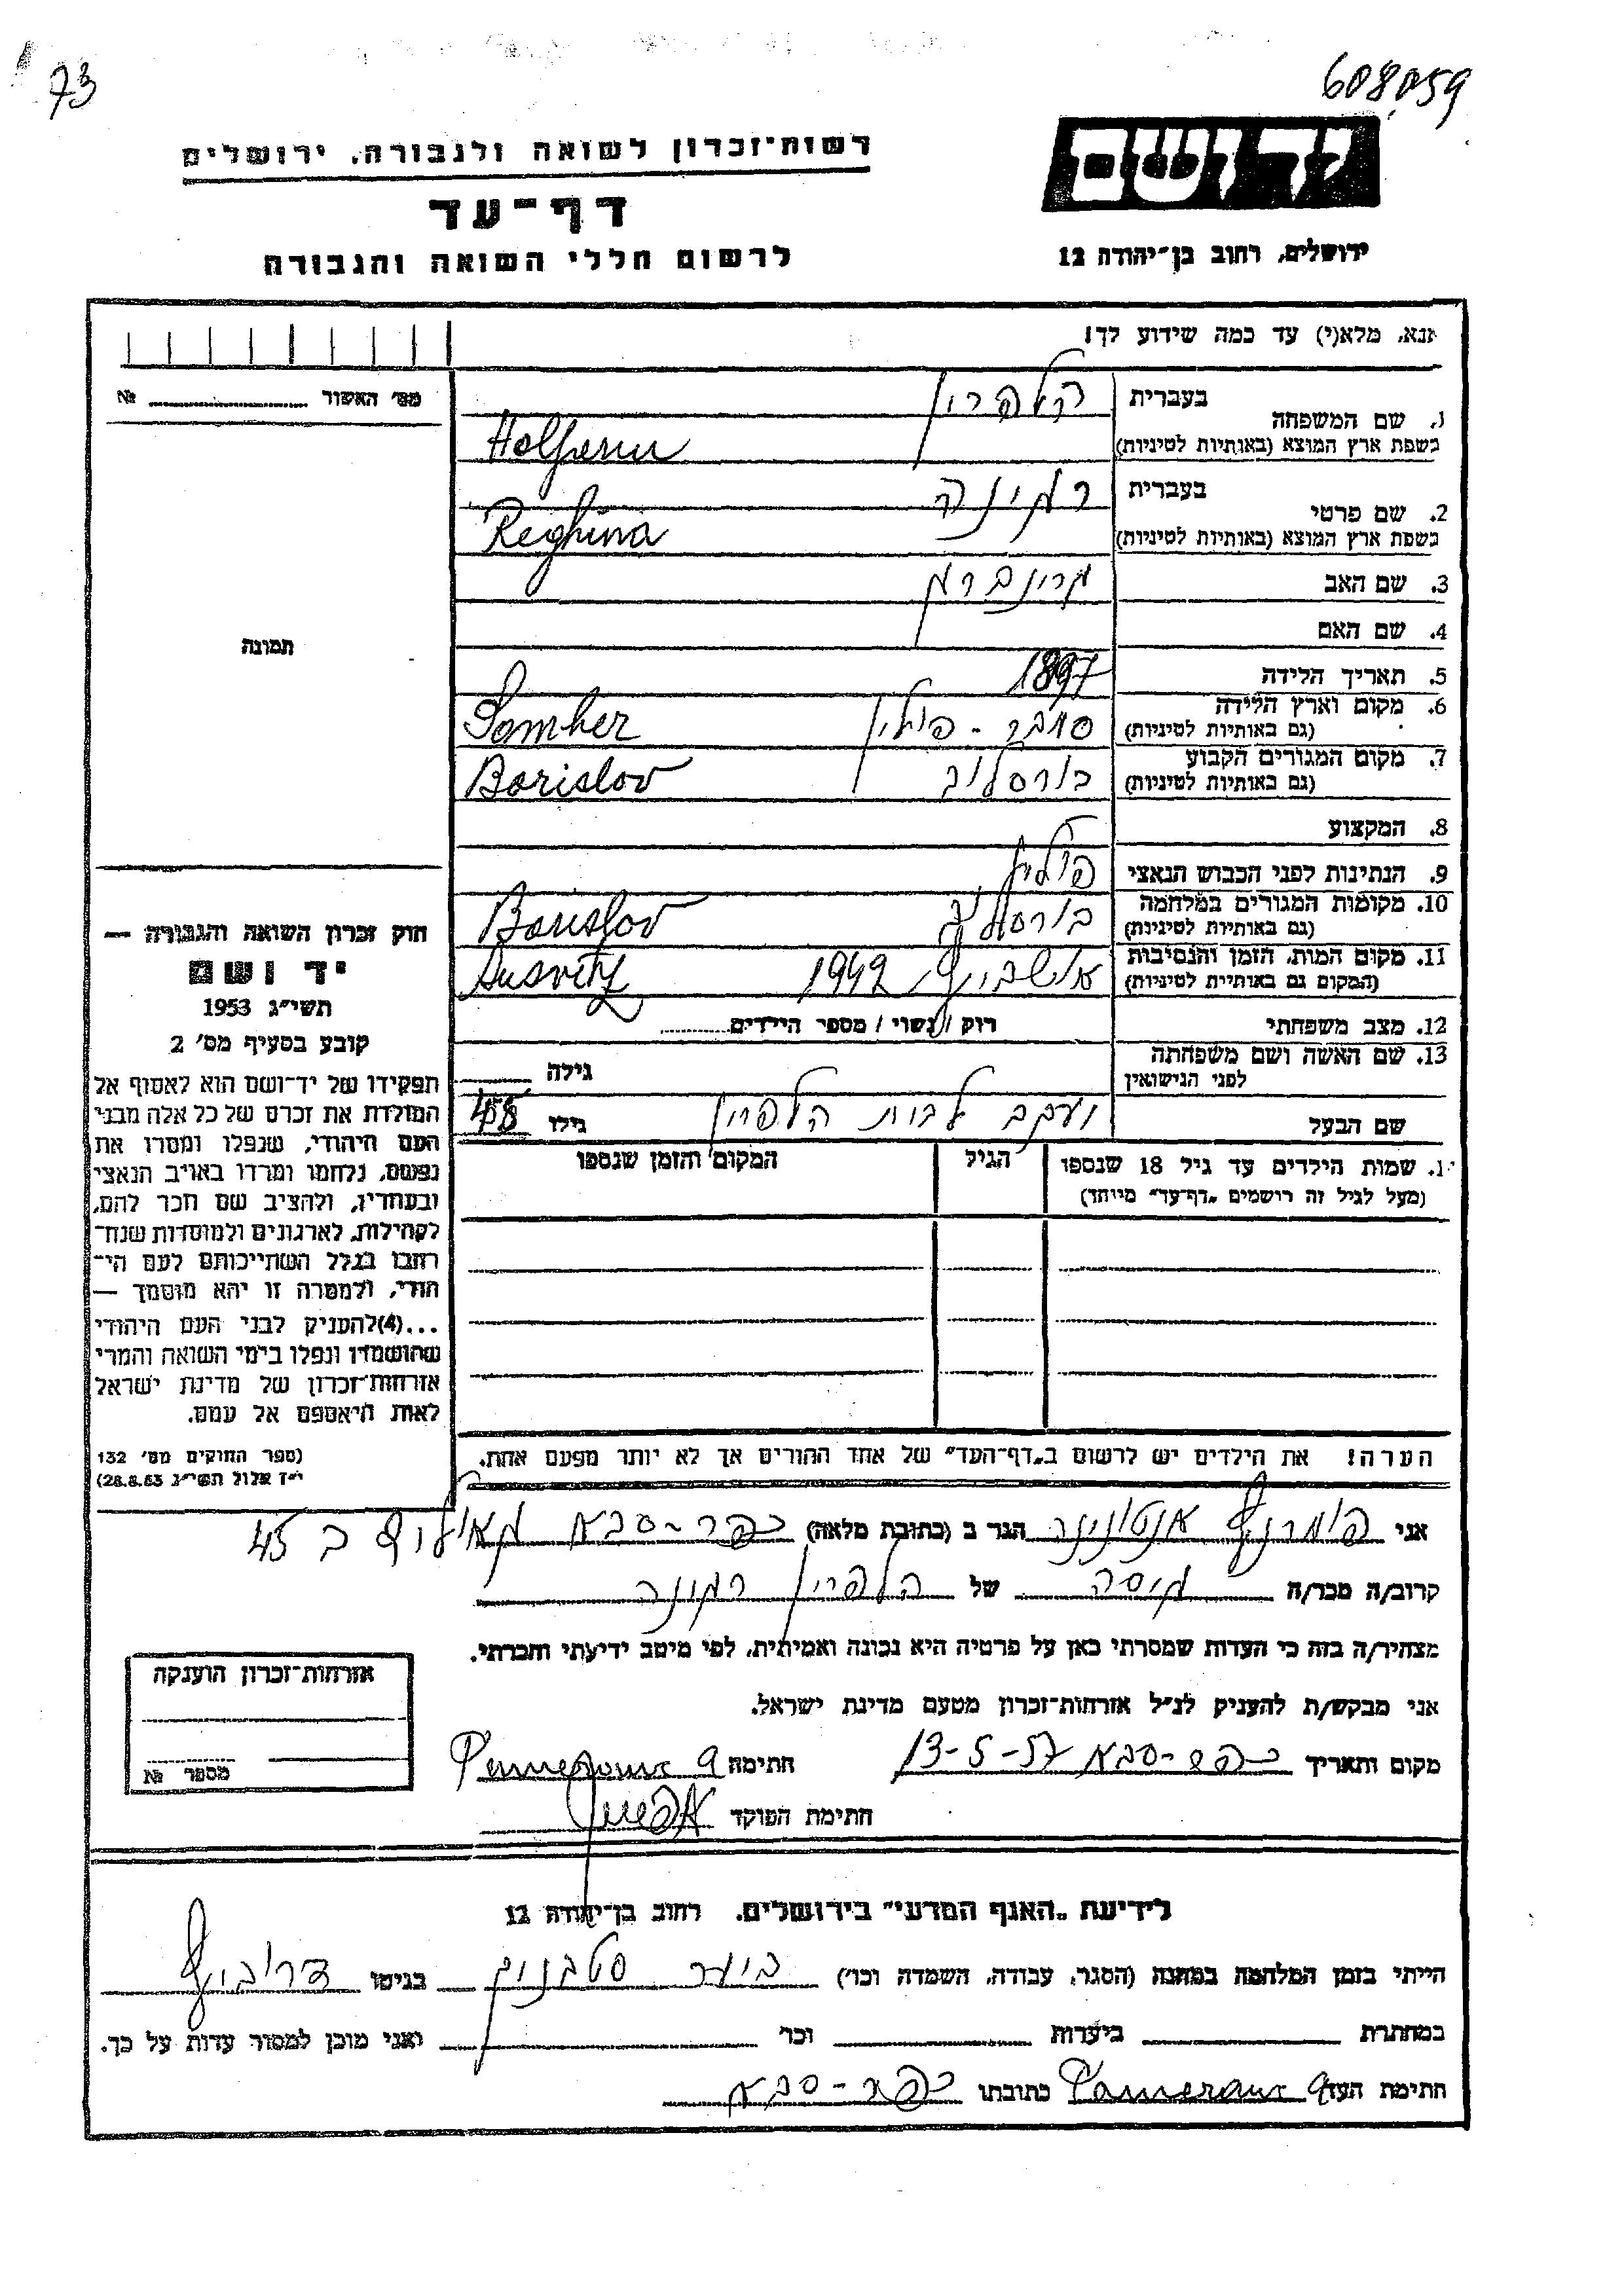 73
608059
רשות־זכרון לשואה ולגבורה, ירושלים
יד ושם
דף־עד
ירושלים, רחוב בן־יהודה 12
לרשום חללי השואה והגבורה
אנא, מלא(י) עד כמה שידוע לך!
מס' האשור № 
1. שם המשפחה
בעברית הלפרין
בשפת ארץ המוצא (באותיות לטיניות) Halpern
2. שם פרטי
בעברית רגינה
בשפת ארץ המוצא (באותיות לטיניות) Reghina
3. שם האב
4. שם האם
תמונה
5. תאריך הלידה 1897
6. מקום וארץ הלידה (גם באותיות לטיניות) סמבר - פולין Samber
7. מקום המגורים הקבוע (גם באותיות לטיניות) בורסלוב Borislov
8. המקצוע
9. הנתינות לפני הכבוש הנאצי פולין
10. מקומות המגורים במלחמה (גם באותיות לטיניות) בורסלוב Borislov
11. מקום המות, הזמן והנסיבות (המקום גם באותיית לטיניות) אושביץ 1942 Ausvitz
12. מצב משפחתי רוק / נשוי / מספר הילדים
13. שם האשה ושם משפחתה לפני הנישואין גילה
שם הבעל הלפרין גילו
1. שמות הילדים עד גיל 18 שנספו
(מעל לגיל זה רושמים „דף־עד" מיוחד)
הגיל
המקום והזמן שנספו
חוק זכרון השואה והגבורה —
יד ושם
תשי"ג 1953
קובע בסעיף מס' 2
תפקידו של יד־ושם הוא לאסוף אל
המולדת את זכרם של כל אלה מבני
העם היהודי, שנפלו ומסרו את
נפשם, נלחמו ומרדו באויב הנאצי
ובעוזריו, ולהציב שם וזכר להם,
לקהילות, לארגונים ולמוסדות שנח־
רבו בגלל השתייכותם לעם הי־
הודי, ולמטרה זו יהא מוסמך —
...(4)להעניק לבני העם היהודי
שהושמדו ונפלו בימי השואה והמרי
אזרחות־זכרון של מדינת ישראל
לאות היאספם אל עמם.
(ספר החוקים מס' 132
י"ז אלול תשי"ג 28.8.53)
הערה! את הילדים יש לרשום ב„דף־העד" של אחד ההורים אך לא יותר מפעם אחת.
אני הגר ב (כתובת מלאה) כפר-סבא 45
קרוב/ה מכר/ה גיסה של הלפרין רגינה
מצהיר/ה בזה כי העדות שמסרתי כאן על פרטיה היא נכונה ואמיתית, לפי מיטב ידיעתי והכרתי.
אני מבקש/ת להעניק לנ"ל אזרחות־זכרון מטעם מדינת ישראל.
מקום ותאריך כפר-סבא 13-5-57 חתימה
חתימת הפוקד
אזרחות־זכרון הוענקה
מספר №
לידיעת „האגף המדעי" בירושלים, רחוב בן־יהודה 12
הייתי בזמן המלחמה במחנה (הסגר, עבודה, השמדה וכו') בגיטו
במחתרת ביערות וכו' ואני מוכן למסור עדות על כך.
חתימת העד כתובתו כפר-סבא